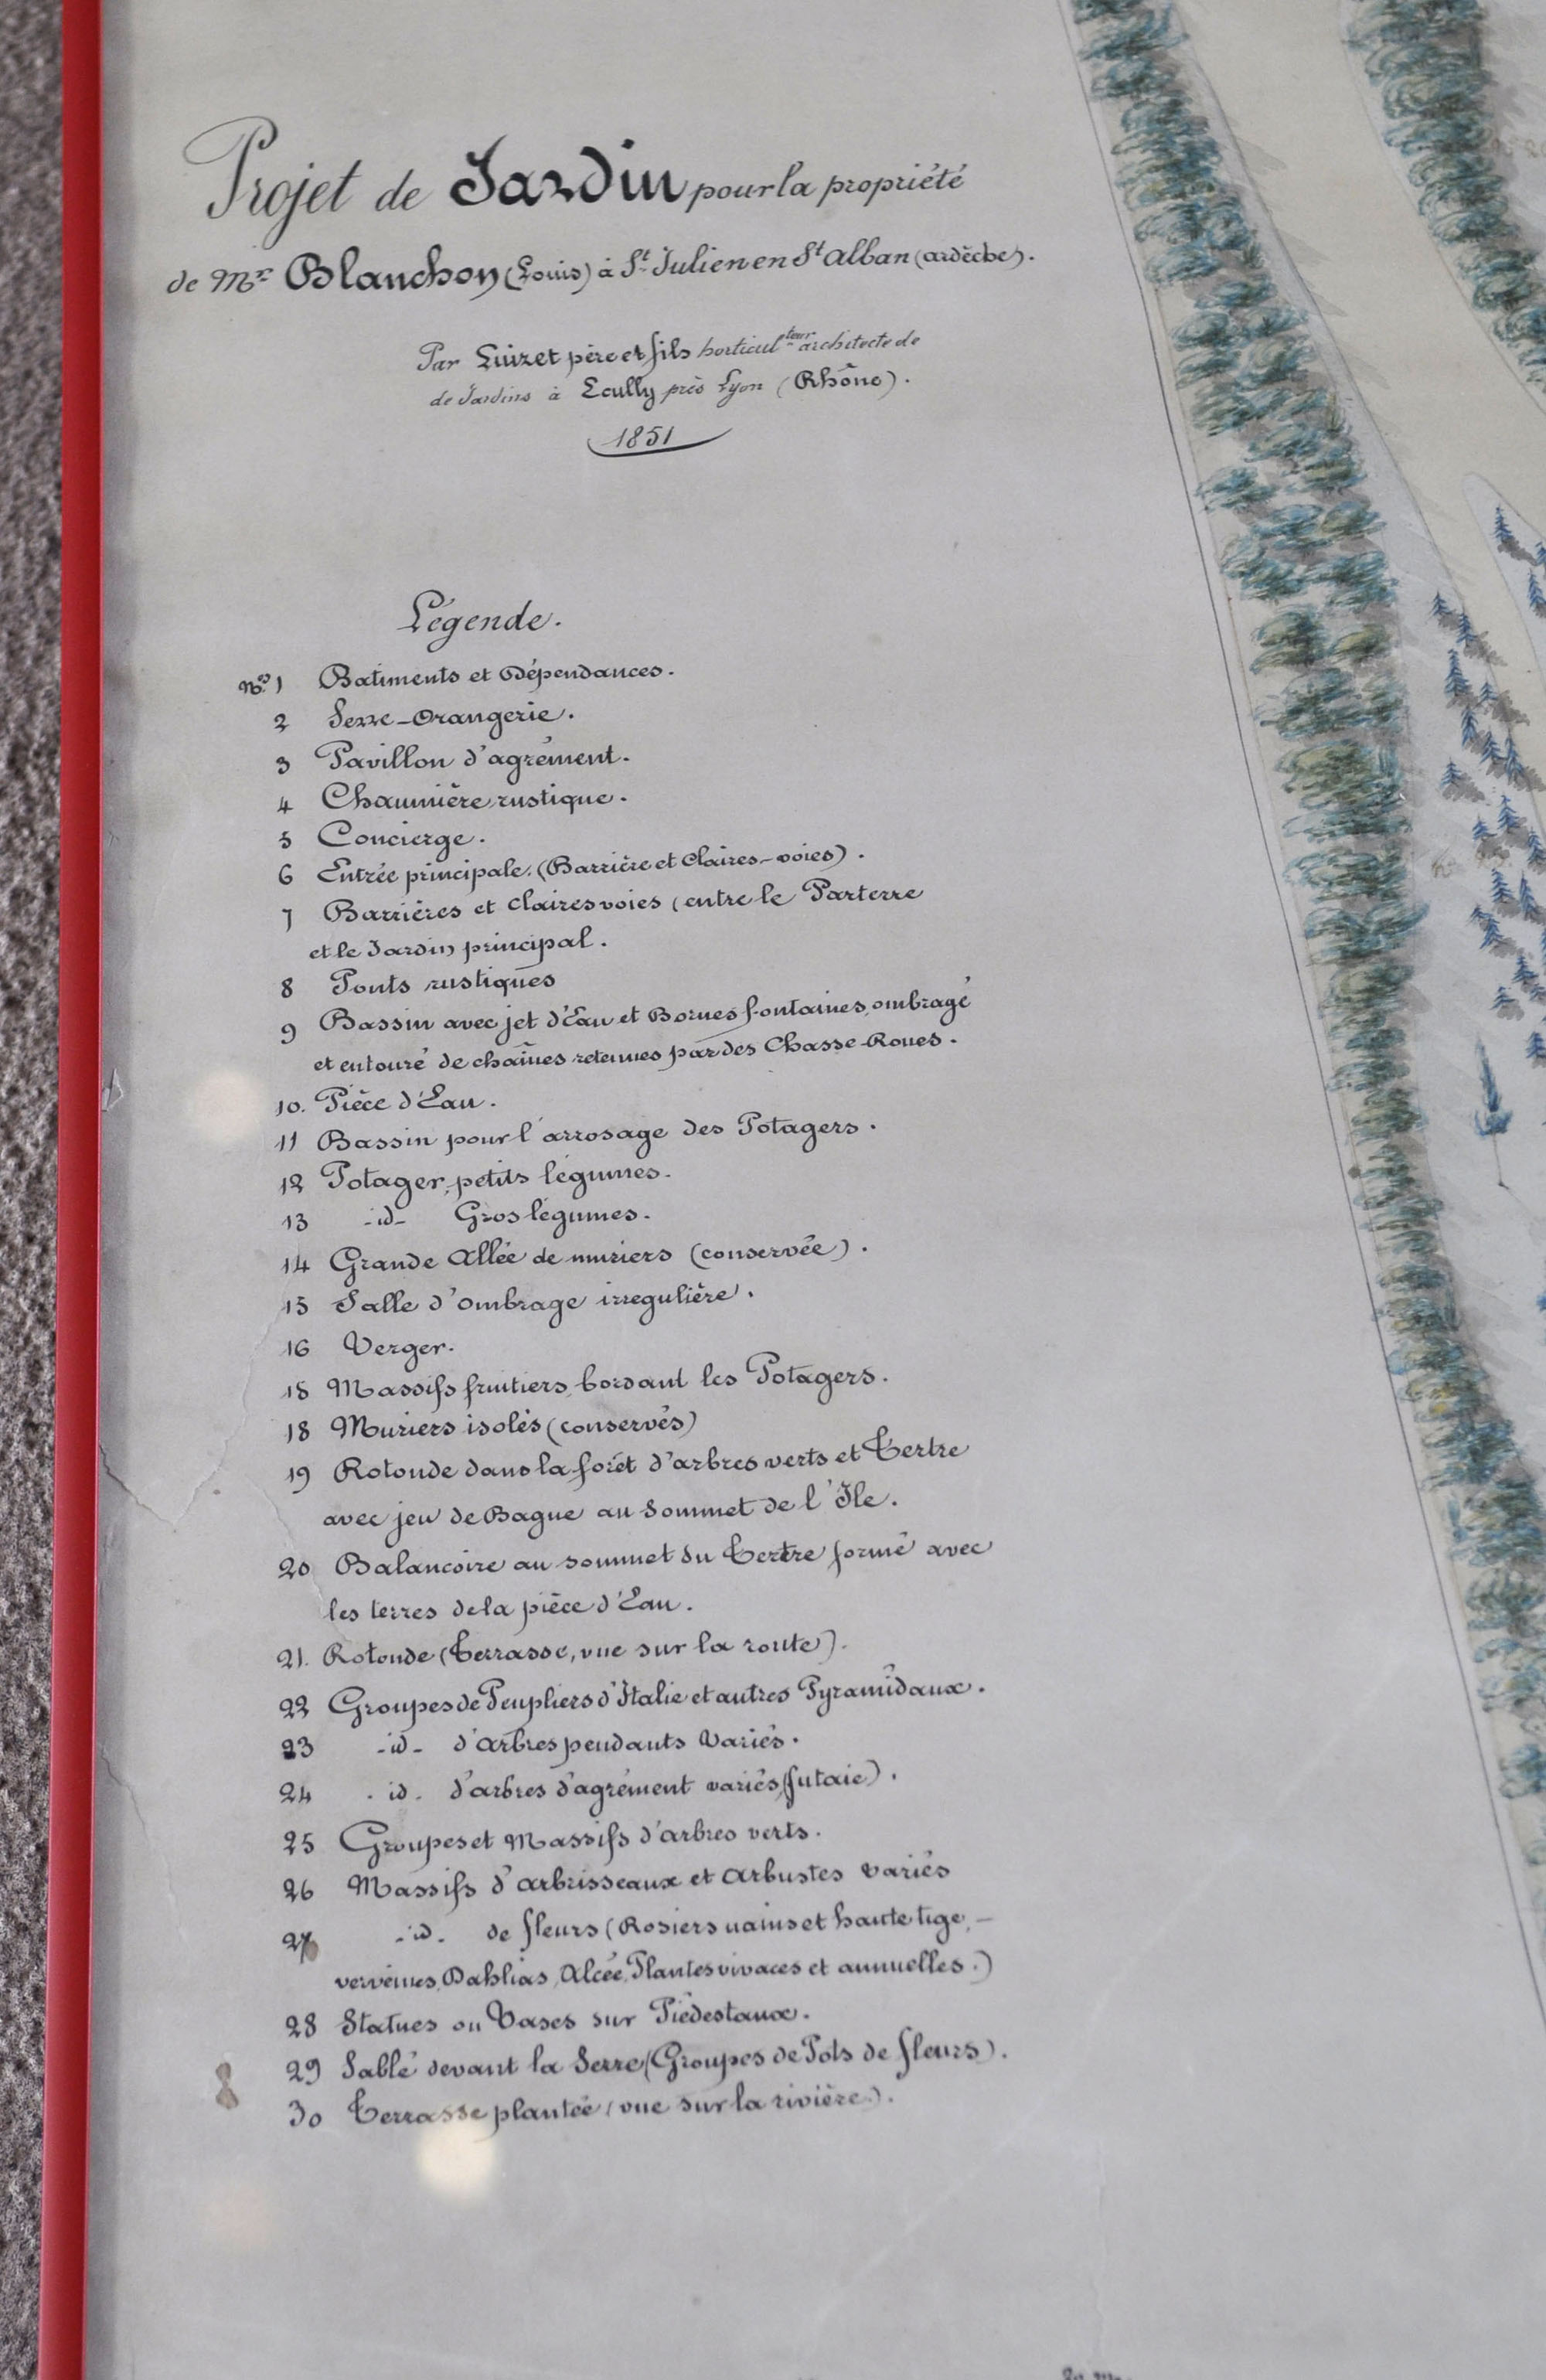 Projet de Jardin pour la propriété
de Mr Blanchon (Louis) à St Julien en St Alban (ardèche).
Par Luizet père et fils horticulteur architecte de
de Jardins à Ecully près Lyon (Rhône).
1851
Légende.
Nos 1 Batiments et Dépendances.
2 Serre-Orangerie.
3 Pavillon d'agrément.
4 Chaumière rustique.
5 Concierge.
6 Entrée principale. (Barrière et Claires-voies).
7 Barrières et claires voies (entre le Parterre
et le Jardin principal.
8 Ponts rustiques
9 Bassin avec jet d'Eau et Bornes fontaines, ombragé
et entouré de chaînes retenues par des Chasse-Roues.
10. Pièce d'Eau.
11 Bassin pour l'arrosage des Potagers.
12 Potager, petits légumes.
13 -id- Gros légumes.
14 Grande Allée de muriers (conservée).
15 Salle d'ombrage irregulière.
16 Verger.
18 Massifs fruitiers, bordant les Potagers.
18 Muriers isolés (conservés)
19 Rotonde dans la forêt d'arbres verts et Tertre
avec jeu de Bague au sommet de l'Ile.
20 Balancoire au sommet du Tertre formé avec
les terres de la pièce d'Eau.
21. Rotonde (Terrasse, vue sur la route).
22 Groupes de Peupliers d'Italie et autres Pyramidaux.
23 -id- d'Arbres pendants Variés.
24 . id. d'arbres d'agrément variés (futaie).
25 Groupes et Massifs d'arbres verts.
26 Massifs d'arbrisseaux et Arbustes variés
27 -id. de fleurs (Rosiers nains et haute tige, -
verveines, Dahlias, Alcée, Plantes vivaces et annuelles.)
28 Statues ou Vases sur Piédestaux.
29 Sablé devant la Serre (Groupes de Pots de fleurs).
30 Terrasse plantée (vue sur la rivière).